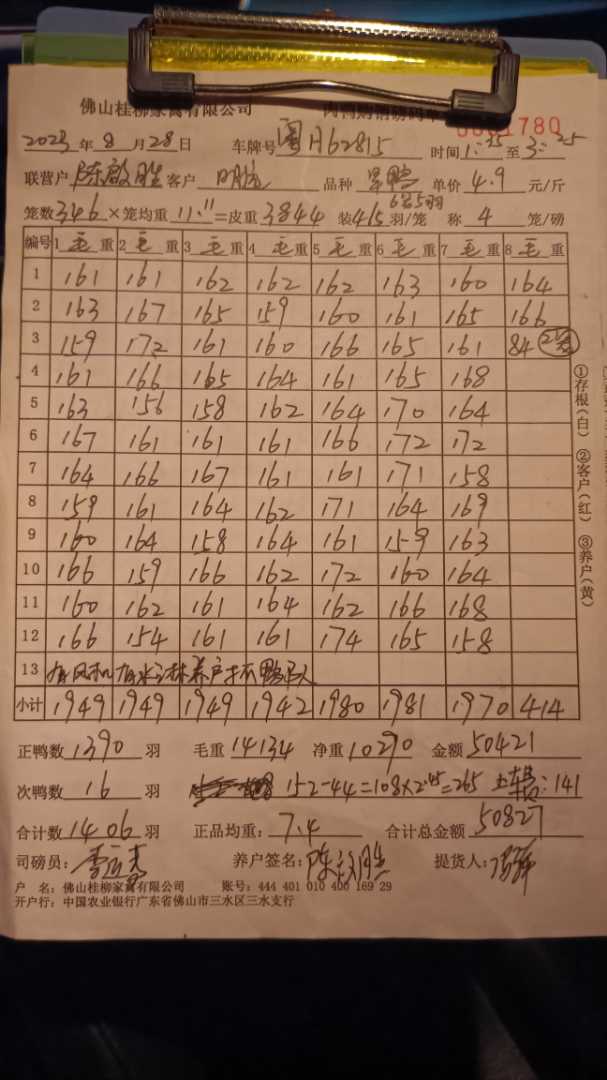 佛山桂柳家禽有限公司 肉鸭购销磅码单
1780
2023年8月28日 车牌号 62815 时间1:35至3:25
联营户 陈啟胜 客户 明 品种 单价4.9元/斤
685羽
笼数346×笼均重11.11=皮重3844 装4.15羽/笼 称4笼/磅
编号 1毛重 2毛重 3毛重 4毛重 5毛重 6毛重 7毛重 8毛重
1 161 161 162 162 162 163 160 164
2 163 167 165 159 160 161 165 166
3 159 172 161 160 166 165 161 84
4 161 166 165 164 161 165 168
5 163 156 158 162 164 170 164
6 167 161 161 161 166 172 172
7 164 166 167 161 161 171 158
8 159 161 164 162 171 164 169
9 160 164 158 164 161 159 163
10 166 159 166 162 172 160 164
11 160 162 161 164 162 166 168
12 166 154 161 161 174 165 158
13 有风机 有水
小计 1949 1949 1949 1942 1980 1981 1970 414
正鸭数1390羽 毛重14134 净重10290 金额50421
次鸭数16羽 152-44=108×2.45=265 :141
合计数1406羽 正品均重:7.4 合计总金额50827
司磅员: 李 养户签名:陈啟胜 提货人:
户 名:佛山桂柳家禽有限公司 账号:444 401 010 400 169 29
开户行:中国农业银行广东省佛山市三水区三水支行
①存根(白) ②客户(红) ③养户(黄)